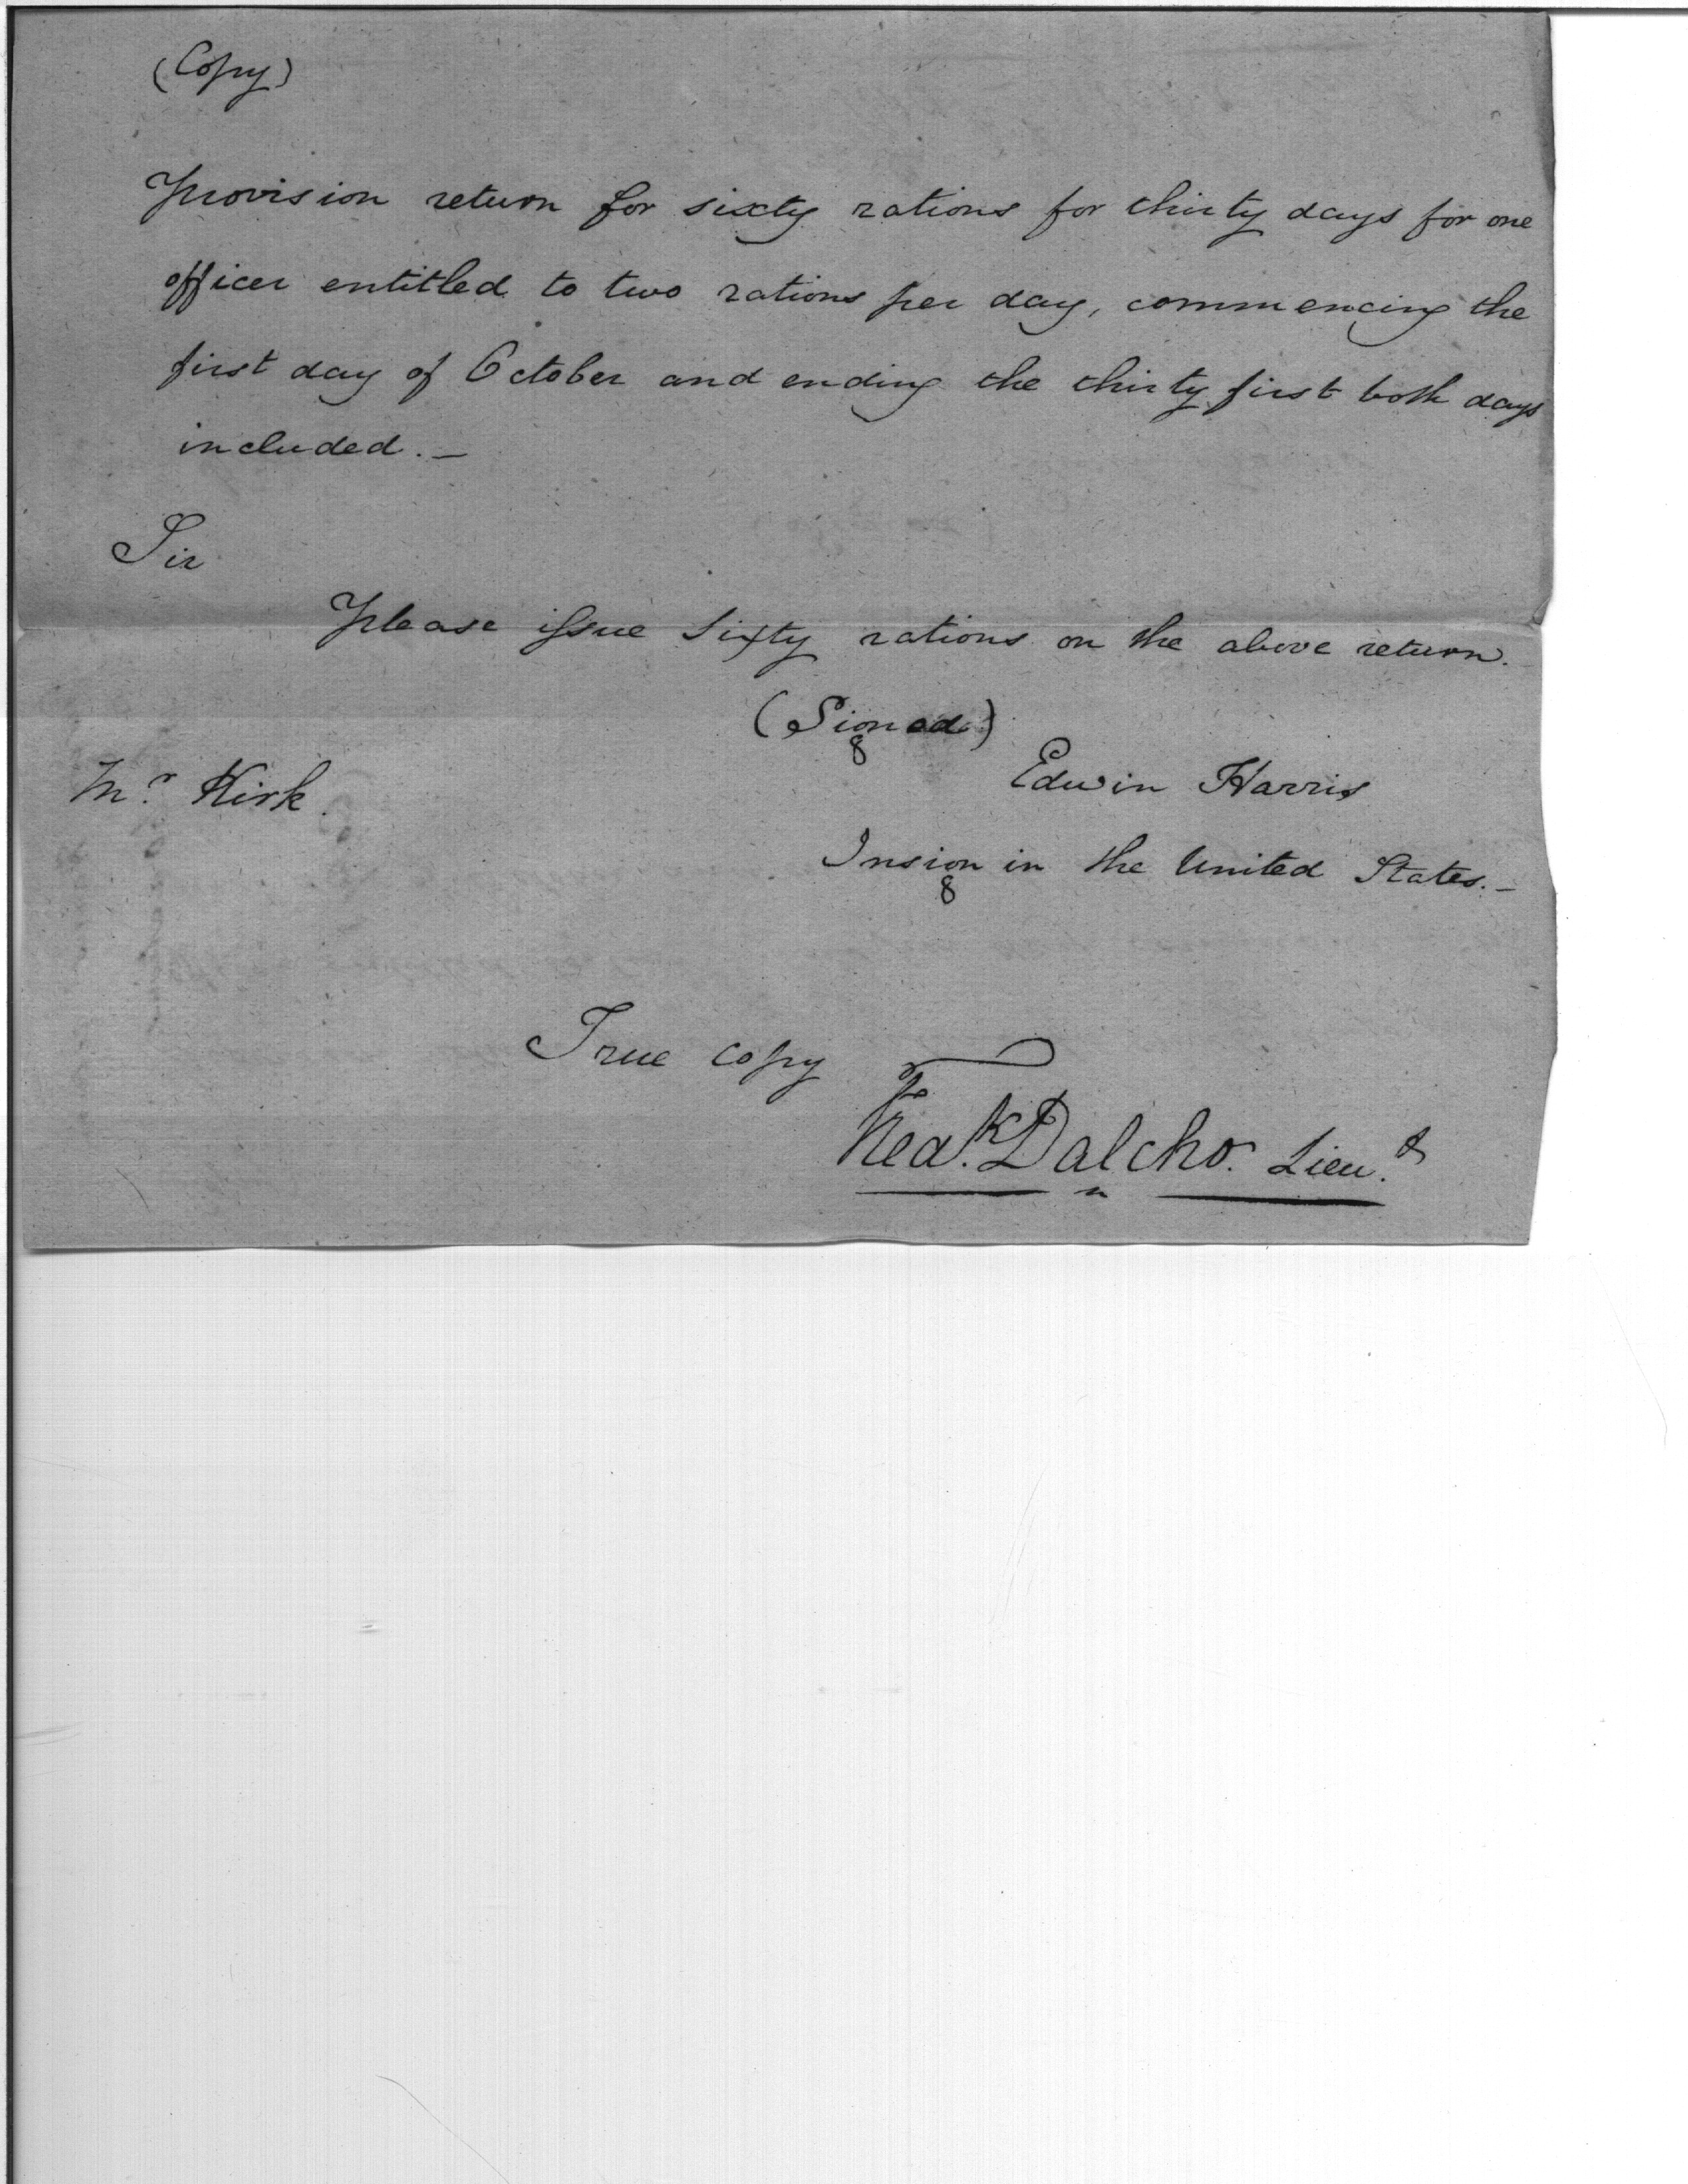 (Copy)
Provision return for sixty rations for thirty days for one
officer entitled to two rations per day, commencing the
first day of October and ending the thirty first both days
included. _
Sir
Please issue Sixty rations on the above return.
(Signed)
Mr. Kirk.
Edwin Harris
Insign in the United States. _
True copy
Fredk. Dalcho. Lieut.